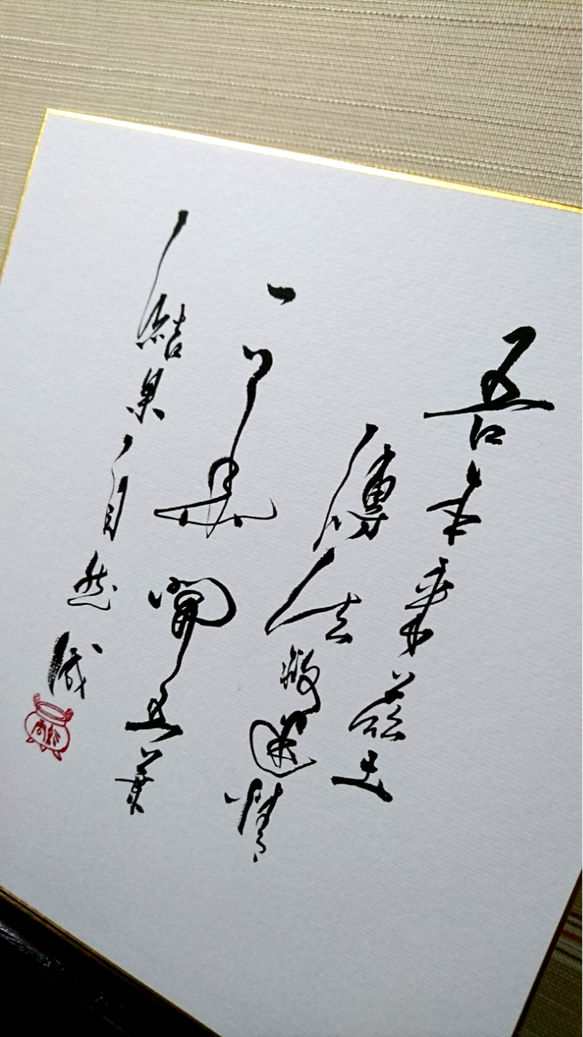 吾本来茲土
傳法救迷情
一花開五葉
結果自然成